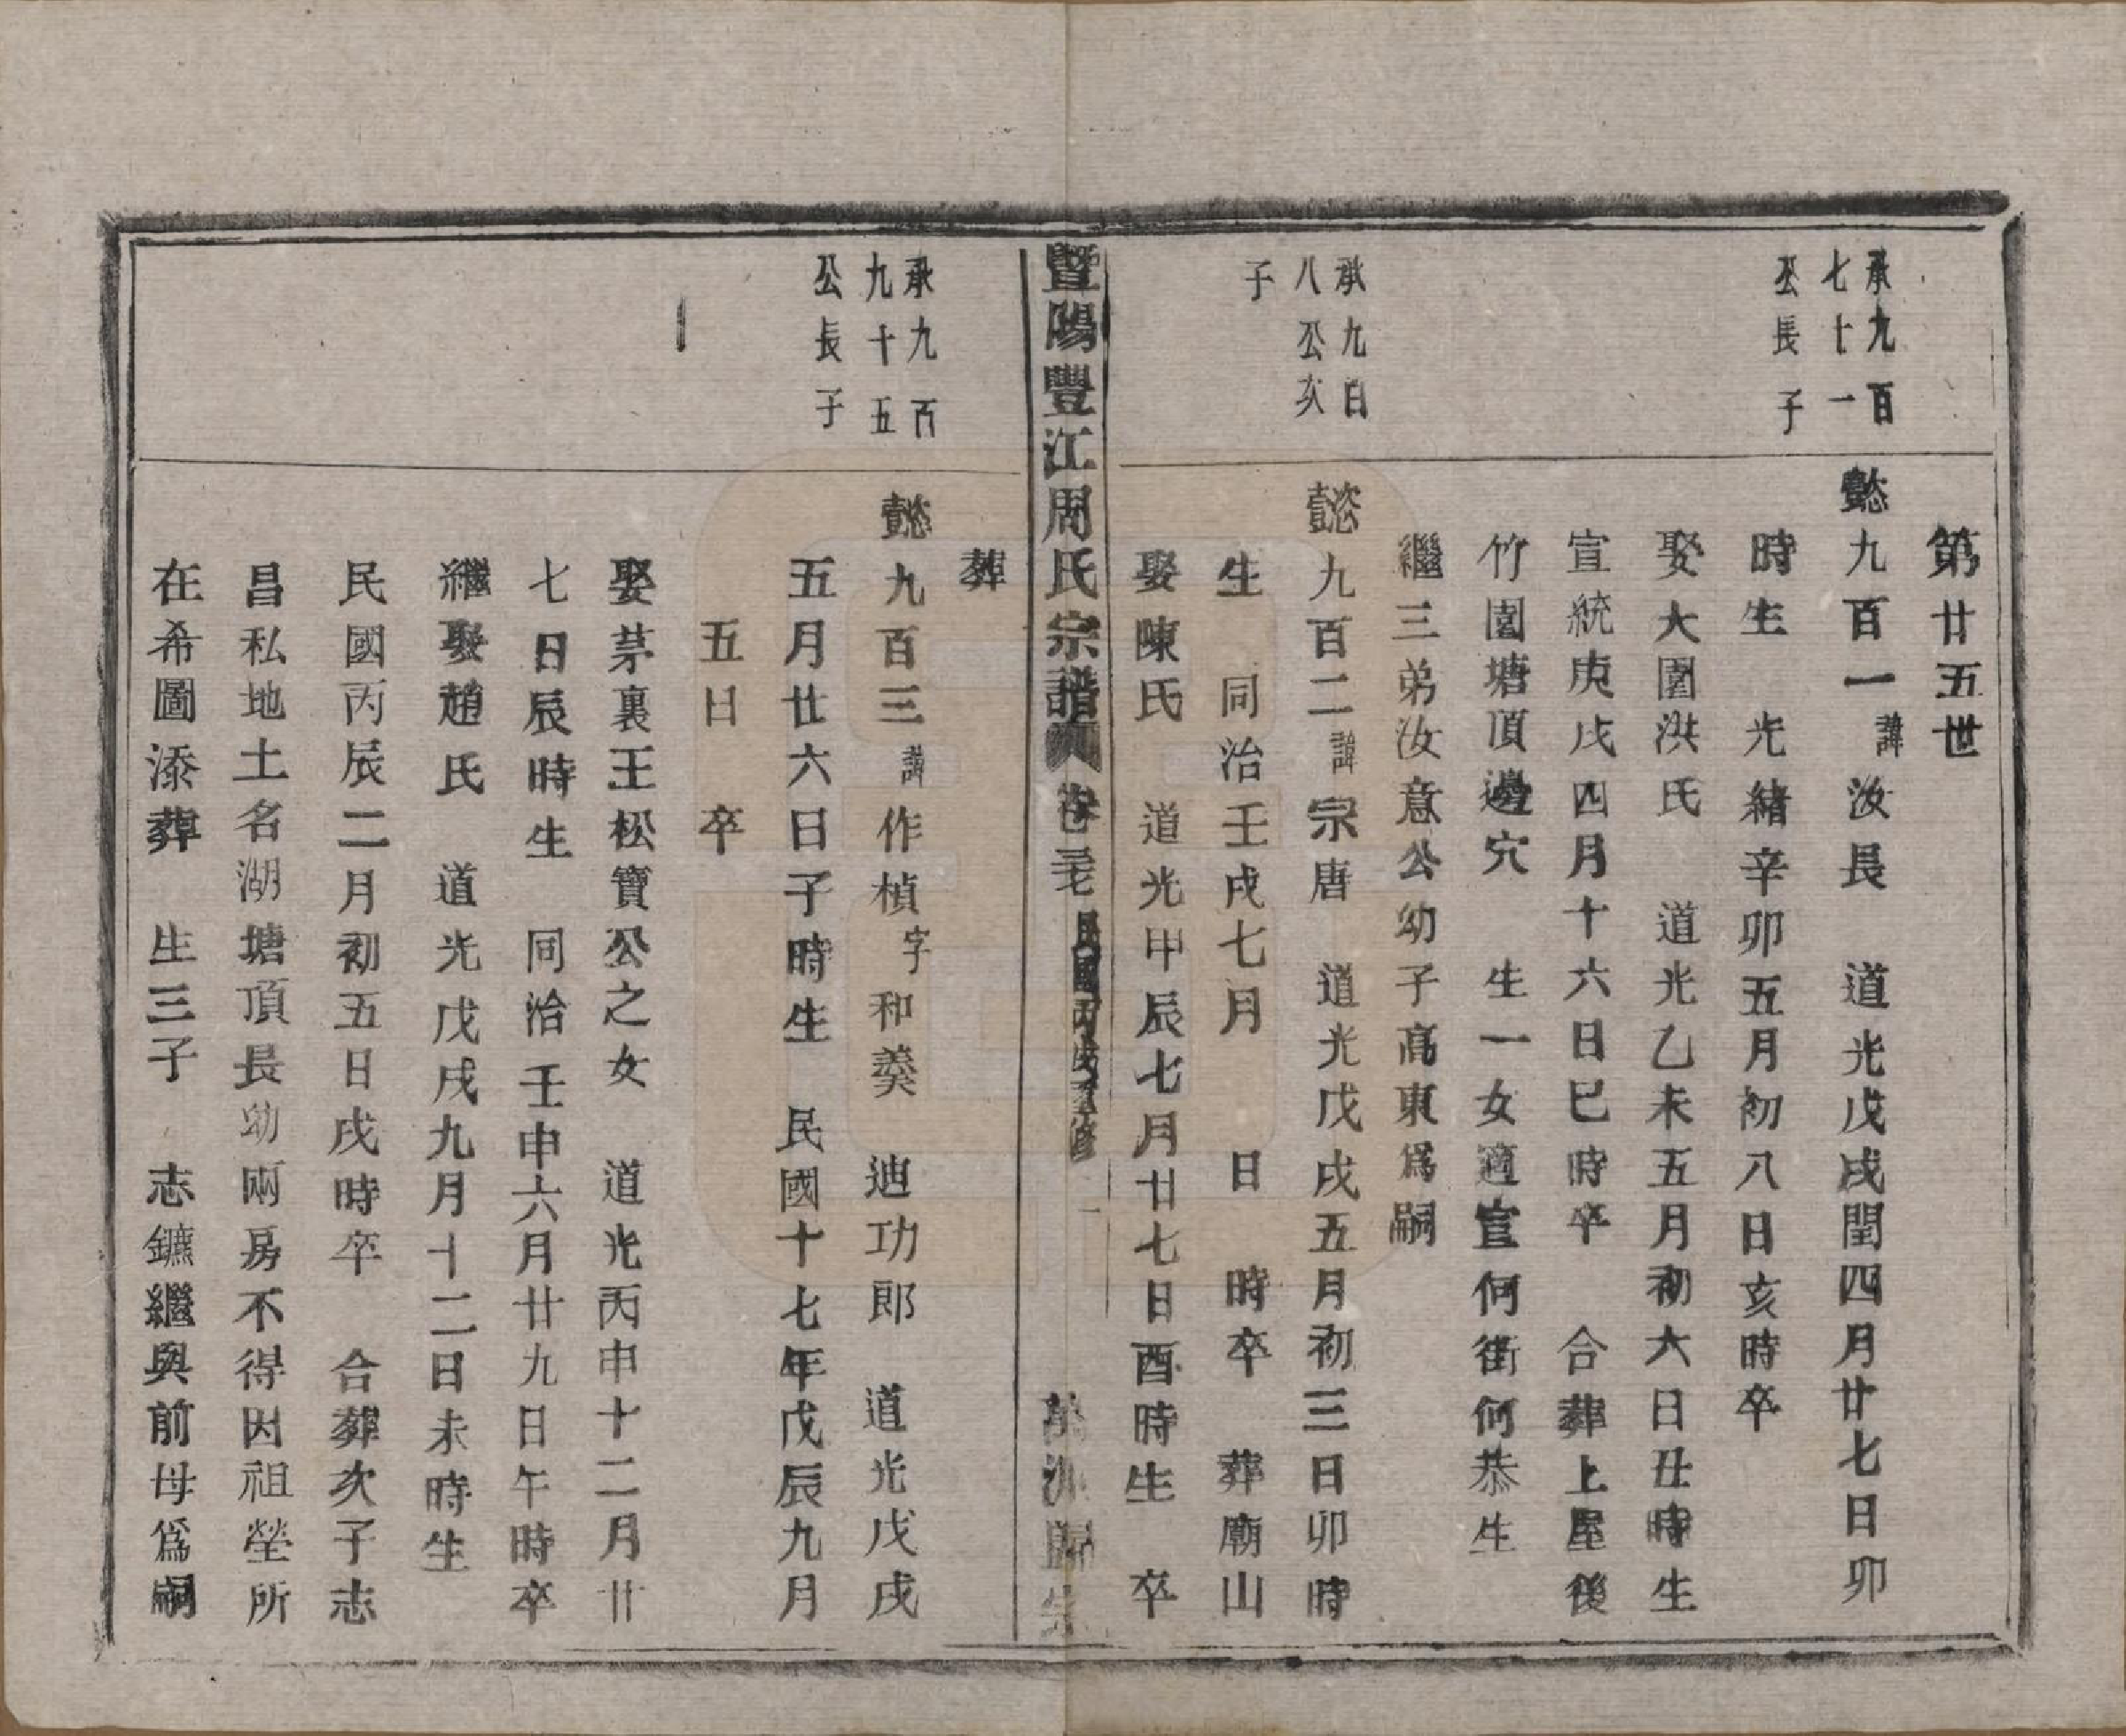 第廿五世
承九百
七十一
公長子
懿九百一諱汝長　道光戊戌閏四月廿七日卯
時生　光緒辛卯五月初八日亥時卒
娶大園洪氏　道光乙未五月初六日丑時生
宣統庚戌四月十六日巳時卒　合葬上屋後
竹園塘頂邊穴　生一女適官何街何恭生
繼三弟汝意公幼子高東爲嗣
承九百
八公次
子
懿九百二諱宗唐　道光戊戌五月初三日卯時
生　同治壬戌七月　日　時卒　葬廟山
娶陳氏　道光甲辰七月廿七日酉時生　卒
暨陽豐江周氏宗譜　卷　民國丙戌重修
葬
承九百
九十五
公長子
懿九百三諱作楨字和羹　迪功郎　道光戊戌
五月廿六日子時生　民國十七年戊辰九月
五日　卒
娶茅裏王松寶公之女　道光丙申十二月廿
七日辰時生　同治壬申六月廿九日午時卒
繼娶趙氏　道光戊戌九月十二日未時生
民國丙辰二月初五日戌時卒　合葬次子志
昌私地土名湖塘頂長幼兩房不得因祖塋所
在希圖添葬　生三子　志鑣繼與前母爲嗣